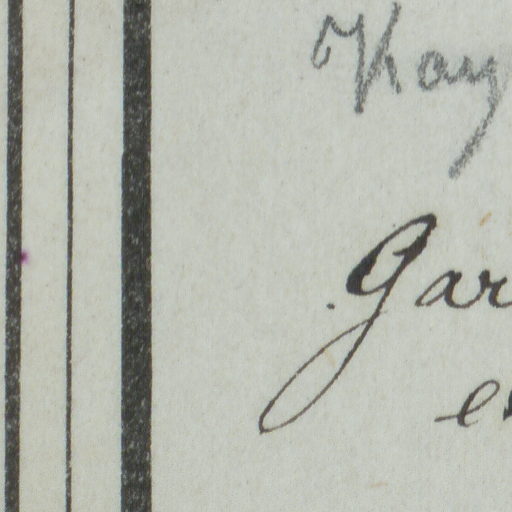 Kay
Gar
e